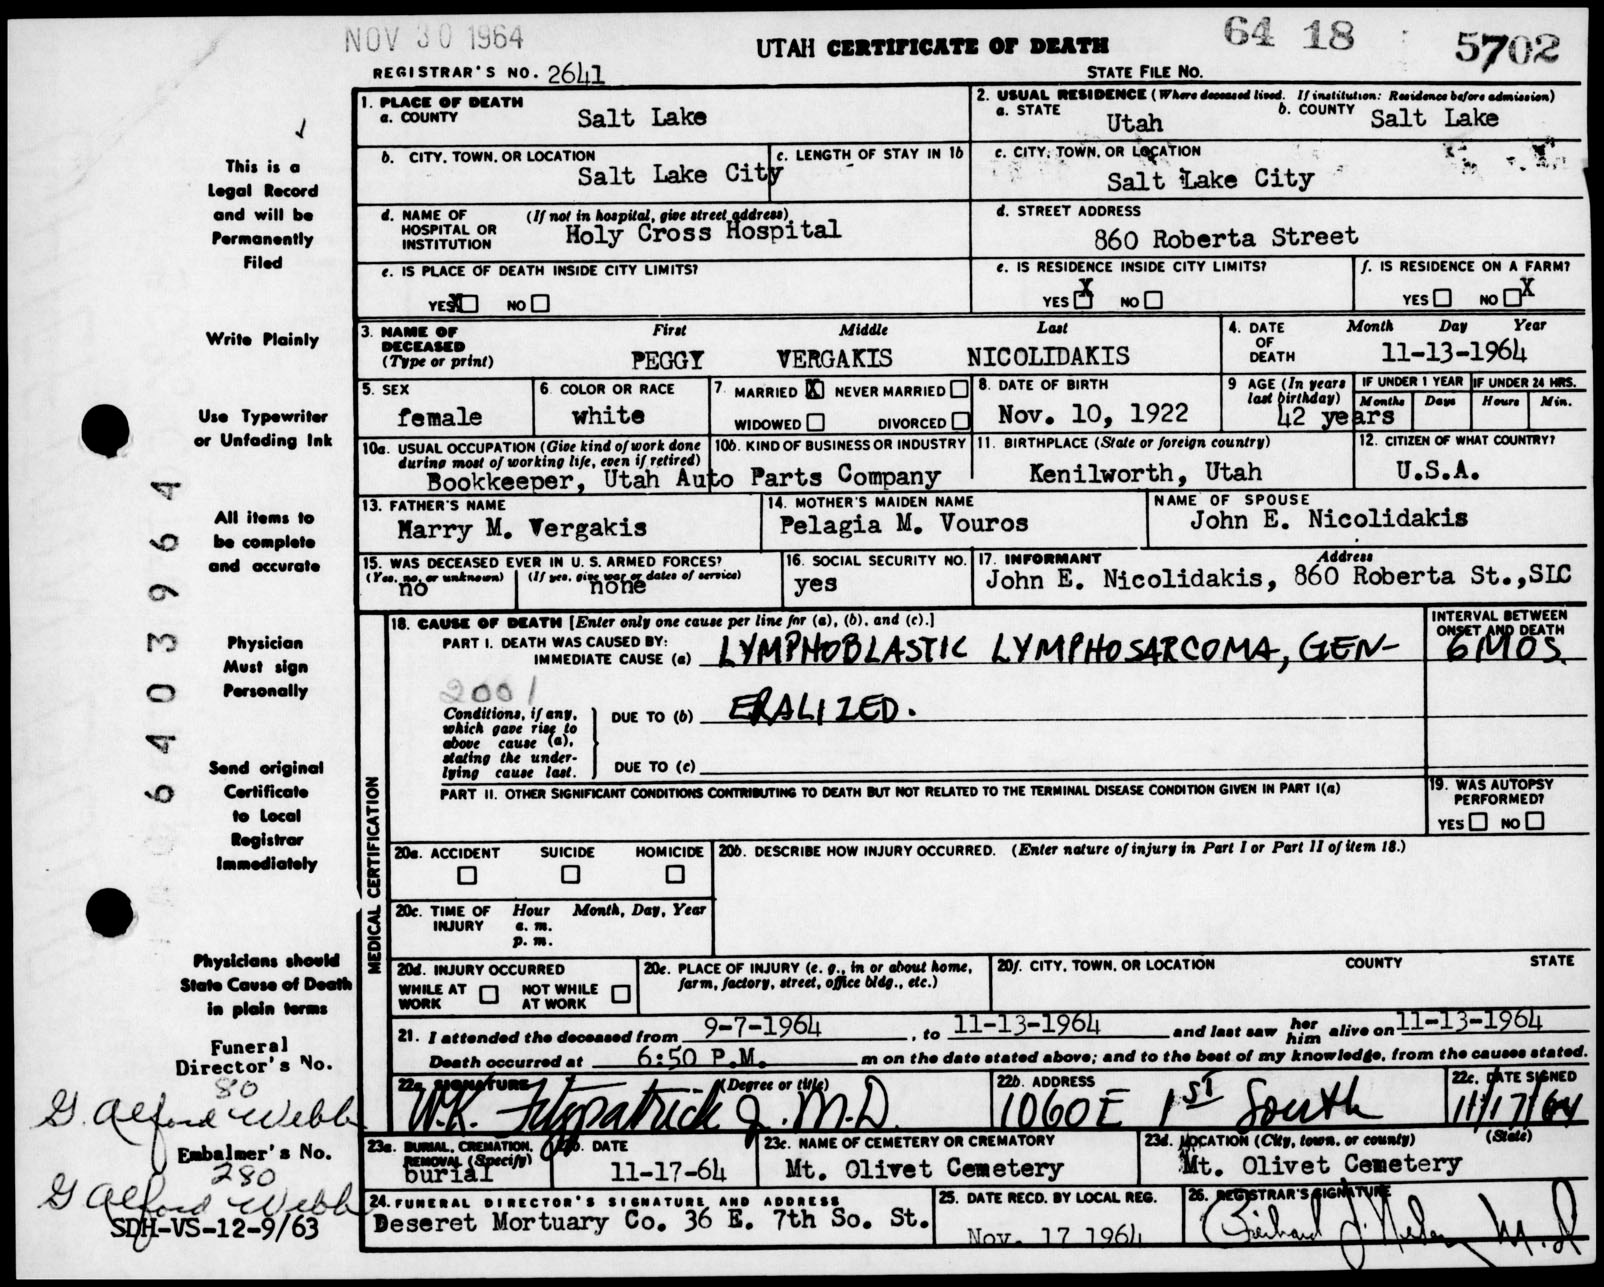 NOV 30 1964
UTAH CERTIFICATE OF DEATH
64 18 5702
REGISTRAR'S NO. 2641
STATE FILE NO.
This is a
Legal Record
and will be
Permanently
Filed
Write Plainly
Use Typewriter
or Unfading Ink
All items to
be complete
and accurate
Physician
Must sign
Personally
Send original
Certificate
to Local
Registrar
Immediately
Physicians should
State Cause of Death
in plain terms
Funeral
Director's No.
80
G. Alford Webb
Embalmer's No.
280
G Alford Webb
SDH-VS-12-9/63
6403964
1. PLACE OF DEATH
a. COUNTY Salt Lake
2. USUAL RESIDENCE (Where deceased lived. If institution: Residence before admission)
a. STATE Utah b. COUNTY Salt Lake
b. CITY, TOWN, OR LOCATION Salt Lake City
c. LENGTH OF STAY IN 1b
c. CITY, TOWN, OR LOCATION
Salt Lake City
d. NAME OF HOSPITAL OR INSTITUTION (If not in hospital, give street address)
Holy Cross Hospital
d. STREET ADDRESS
860 Roberta Street
e. IS PLACE OF DEATH INSIDE CITY LIMITS?
YES X NO
e. IS RESIDENCE INSIDE CITY LIMITS?
YES X NO
f. IS RESIDENCE ON A FARM?
YES NO X
3. NAME OF DECEASED (Type or print)
First Middle Last
PEGGY VERGAKIS NICOLIDAKIS
4. DATE OF DEATH Month Day Year
11-13-1964
5. SEX
female
6. COLOR OR RACE
white
7. MARRIED X NEVER MARRIED
WIDOWED DIVORCED
8. DATE OF BIRTH
Nov. 10, 1922
9 AGE (In years last birthday)
42 years
IF UNDER 1 YEAR IF UNDER 24 HRS.
Months Days Hours Min.
10a. USUAL OCCUPATION (Give kind of work done during most of working life, even if retired)
10b. KIND OF BUSINESS OR INDUSTRY
Bookkeeper, Utah Auto Parts Company
11. BIRTHPLACE (State or foreign country)
Kenilworth, Utah
12. CITIZEN OF WHAT COUNTRY?
U.S.A.
13. FATHER'S NAME
Harry M. Vergakis
14. MOTHER'S MAIDEN NAME
Pelagia M. Vouros
NAME OF SPOUSE
John E. Nicolidakis
15. WAS DECEASED EVER IN U. S. ARMED FORCES?
(Yes, no, or unknown) (If yes, give war or dates of service)
no none
16. SOCIAL SECURITY NO.
yes
17. INFORMANT Address
John E. Nicolidakis, 860 Roberta St.,SLC
MEDICAL CERTIFICATION
18. CAUSE OF DEATH [Enter only one cause per line for (a), (b), and (c).]
INTERVAL BETWEEN ONSET AND DEATH
PART I. DEATH WAS CAUSED BY:
IMMEDIATE CAUSE (a) LYMPHOBLASTIC LYMPHOSARCOMA, GEN- 6 MOS.
2001
Conditions, if any, which gave rise to above cause (a), stating the underlying cause last.
DUE TO (b) ERALIZED.
DUE TO (c)
PART II. OTHER SIGNIFICANT CONDITIONS CONTRIBUTING TO DEATH BUT NOT RELATED TO THE TERMINAL DISEASE CONDITION GIVEN IN PART I(a)
19. WAS AUTOPSY PERFORMED?
YES NO
20a. ACCIDENT SUICIDE HOMICIDE
20b. DESCRIBE HOW INJURY OCCURRED. (Enter nature of injury in Part I or Part II of item 18.)
20c. TIME OF INJURY Hour Month, Day, Year
a. m.
p. m.
20d. INJURY OCCURRED
WHILE AT WORK NOT WHILE AT WORK
20e. PLACE OF INJURY (e. g., in or about home, farm, factory, street, office bldg., etc.)
20f. CITY, TOWN, OR LOCATION COUNTY STATE
21. I attended the deceased from 9-7-1964, to 11-13-1964 and last saw her him alive on 11-13-1964
Death occurred at 6:50 P.M. m on the date stated above; and to the best of my knowledge, from the causes stated.
22a. SIGNATURE (Degree or title)
W.K. Fitzpatrick Jr. M.D.
22b. ADDRESS
1060 E 1ST South
22c. DATE SIGNED
11/17/64
23a. BURIAL, CREMATION, REMOVAL (Specify)
burial
23b. DATE
11-17-64
23c. NAME OF CEMETERY OR CREMATORY
Mt. Olivet Cemetery
23d. LOCATION (City, town, or county) (State)
Mt. Olivet Cemetery
24. FUNERAL DIRECTOR'S SIGNATURE AND ADDRESS
Deseret Mortuary Co. 36 E. 7th So. St.
25. DATE RECD. BY LOCAL REG.
Nov. 17 1964
26. REGISTRAR'S SIGNATURE
M.D.